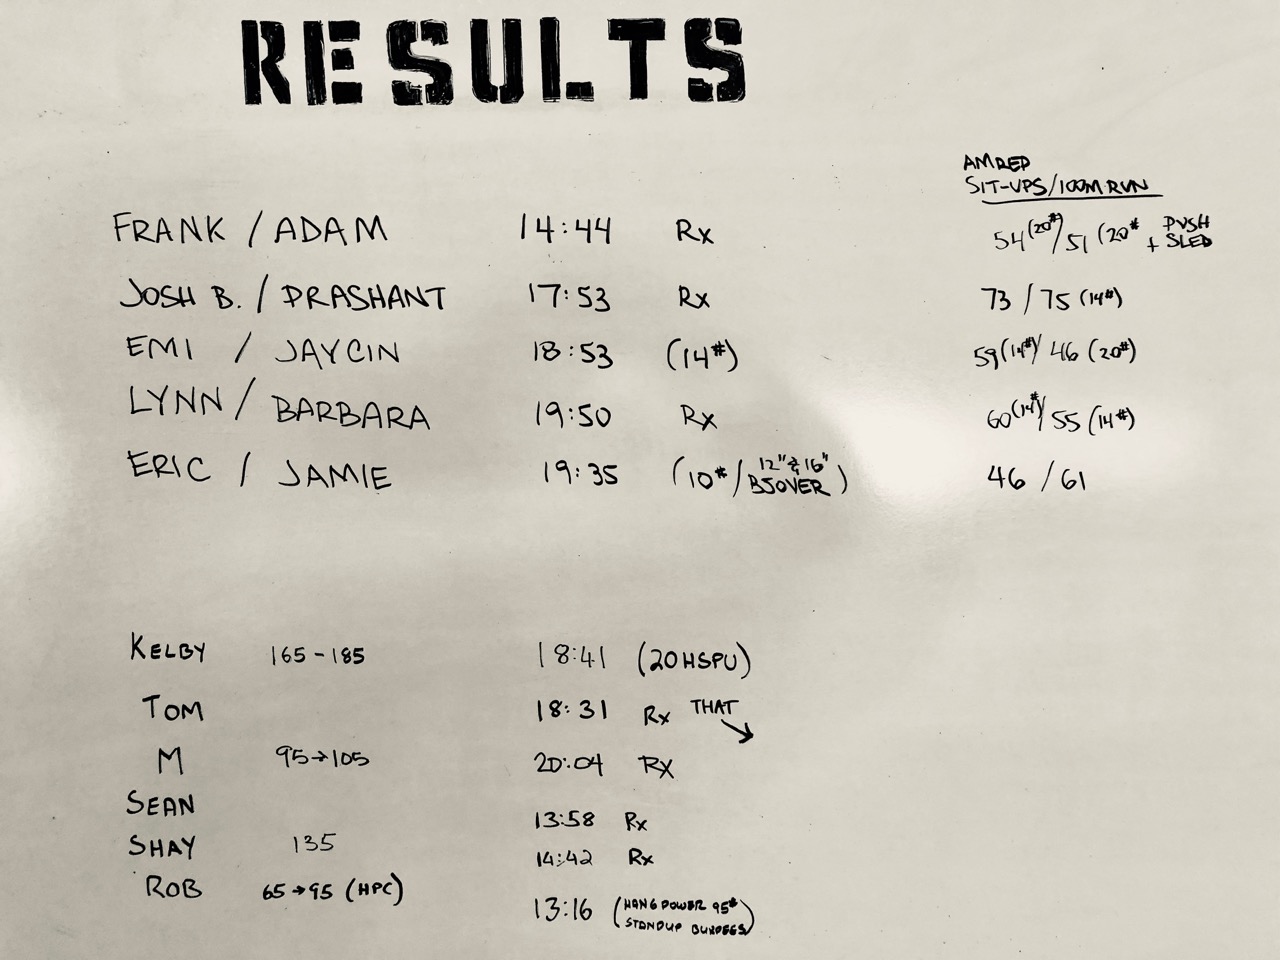 RESULTS
AMREP
SIT-UPS/100M RUN
FRANK / ADAM 14:44 Rx 54 (20#)/51 (20# + PUSH SLED
JOSH B. / PRASHANT 17:53 Rx 73 / 75 (14#)
EMI / JAYCIN 18:53 (14#) 59 (14#)/ 46 (20#)
LYNN / BARBARA 19:50 Rx 60 (14#)/ 55 (14#)
ERIC / JAMIE 19:35 (10# / 12" & 16" BJOVER) 46 / 61
KELBY 165-185 18:41 (20 HSPU)
TOM 18:31 Rx THAT ↘
M 95→105 20:04 Rx
SEAN 13:58 Rx
SHAY 135 14:42 Rx
ROB 65→95 (HPC) 13:16 (HANG POWER 95#
STANDUP BURPEES)